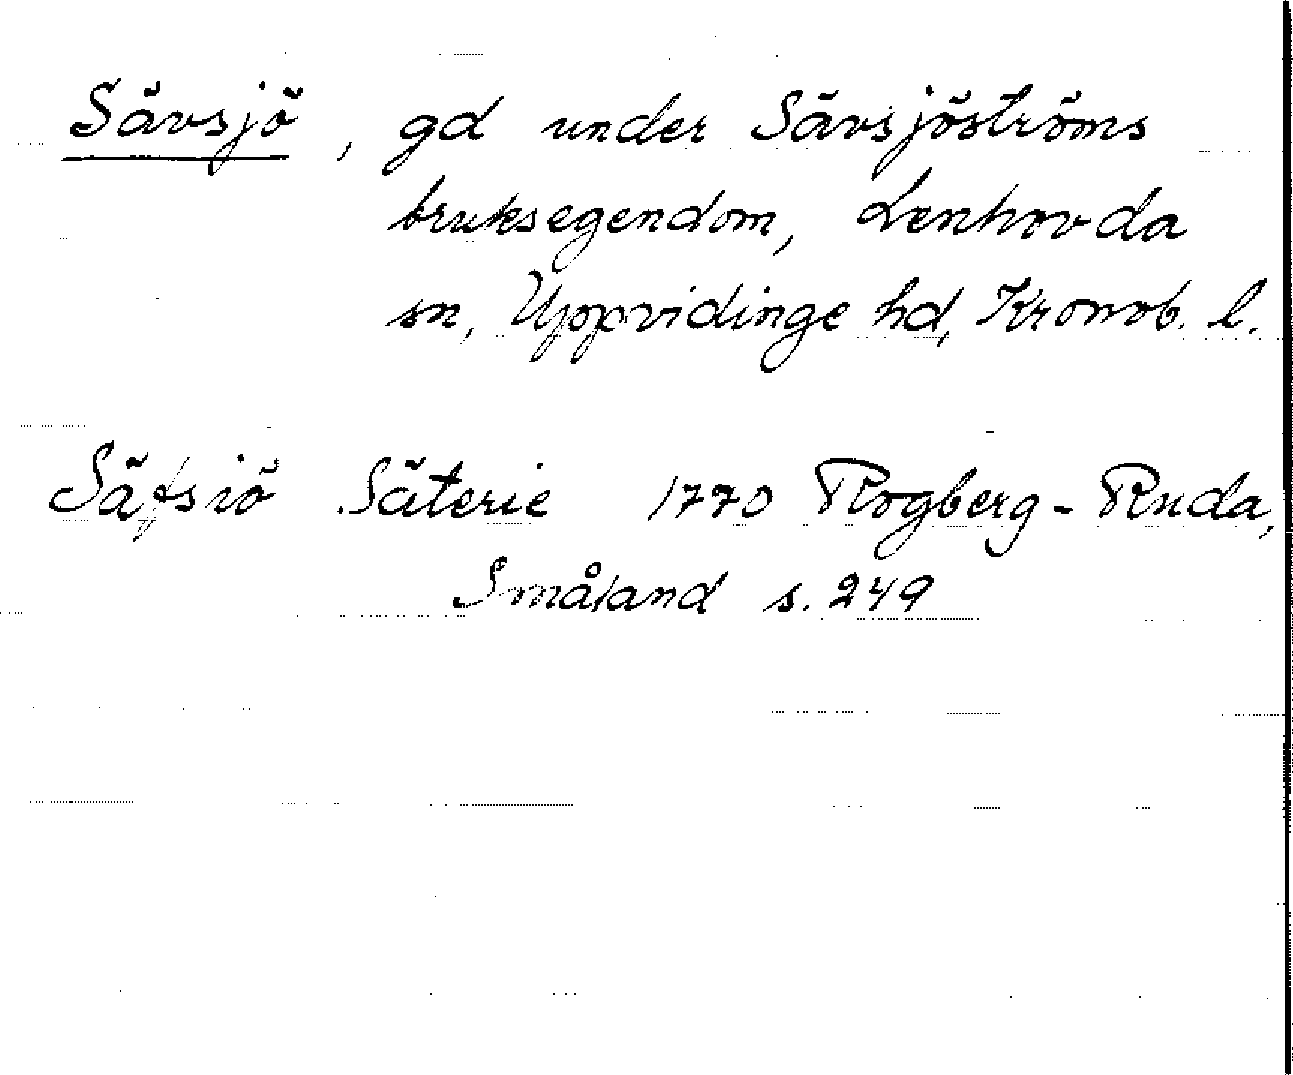 Sävsjö, gd under Sävsjöströms
bruksegendom, Lenhovda
sn, Uppvidinge hd, Kronob. l.
Säfsiö Säterie 1770 Rogberg-Ruda,
Småland s. 249